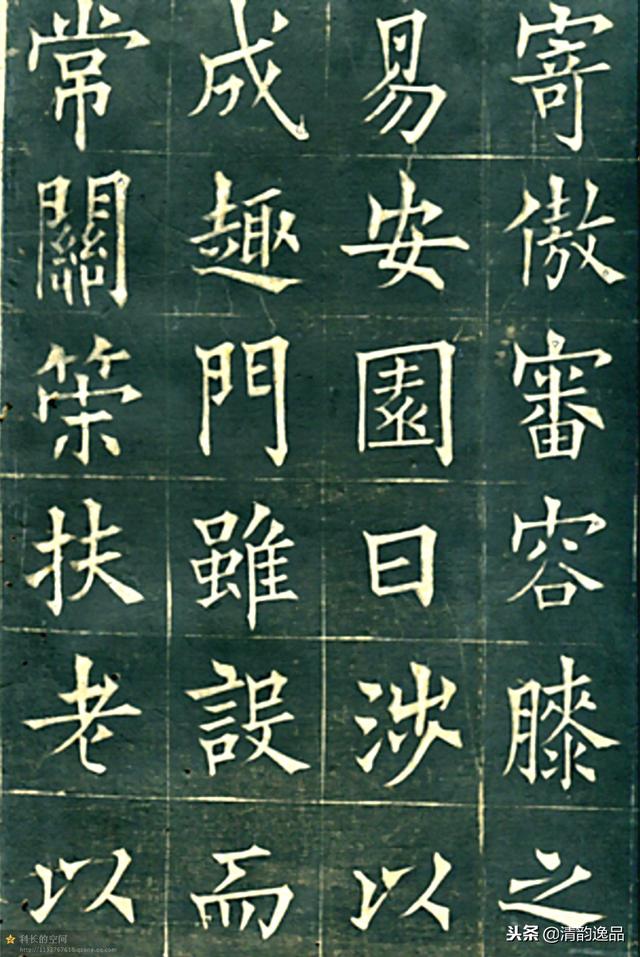 寄傲審容膝之
易安園日涉以
成趣門雖設而
常關策扶老以
科长的空间
http://1132767618.qzone.qq.com
头条@清韵逸品